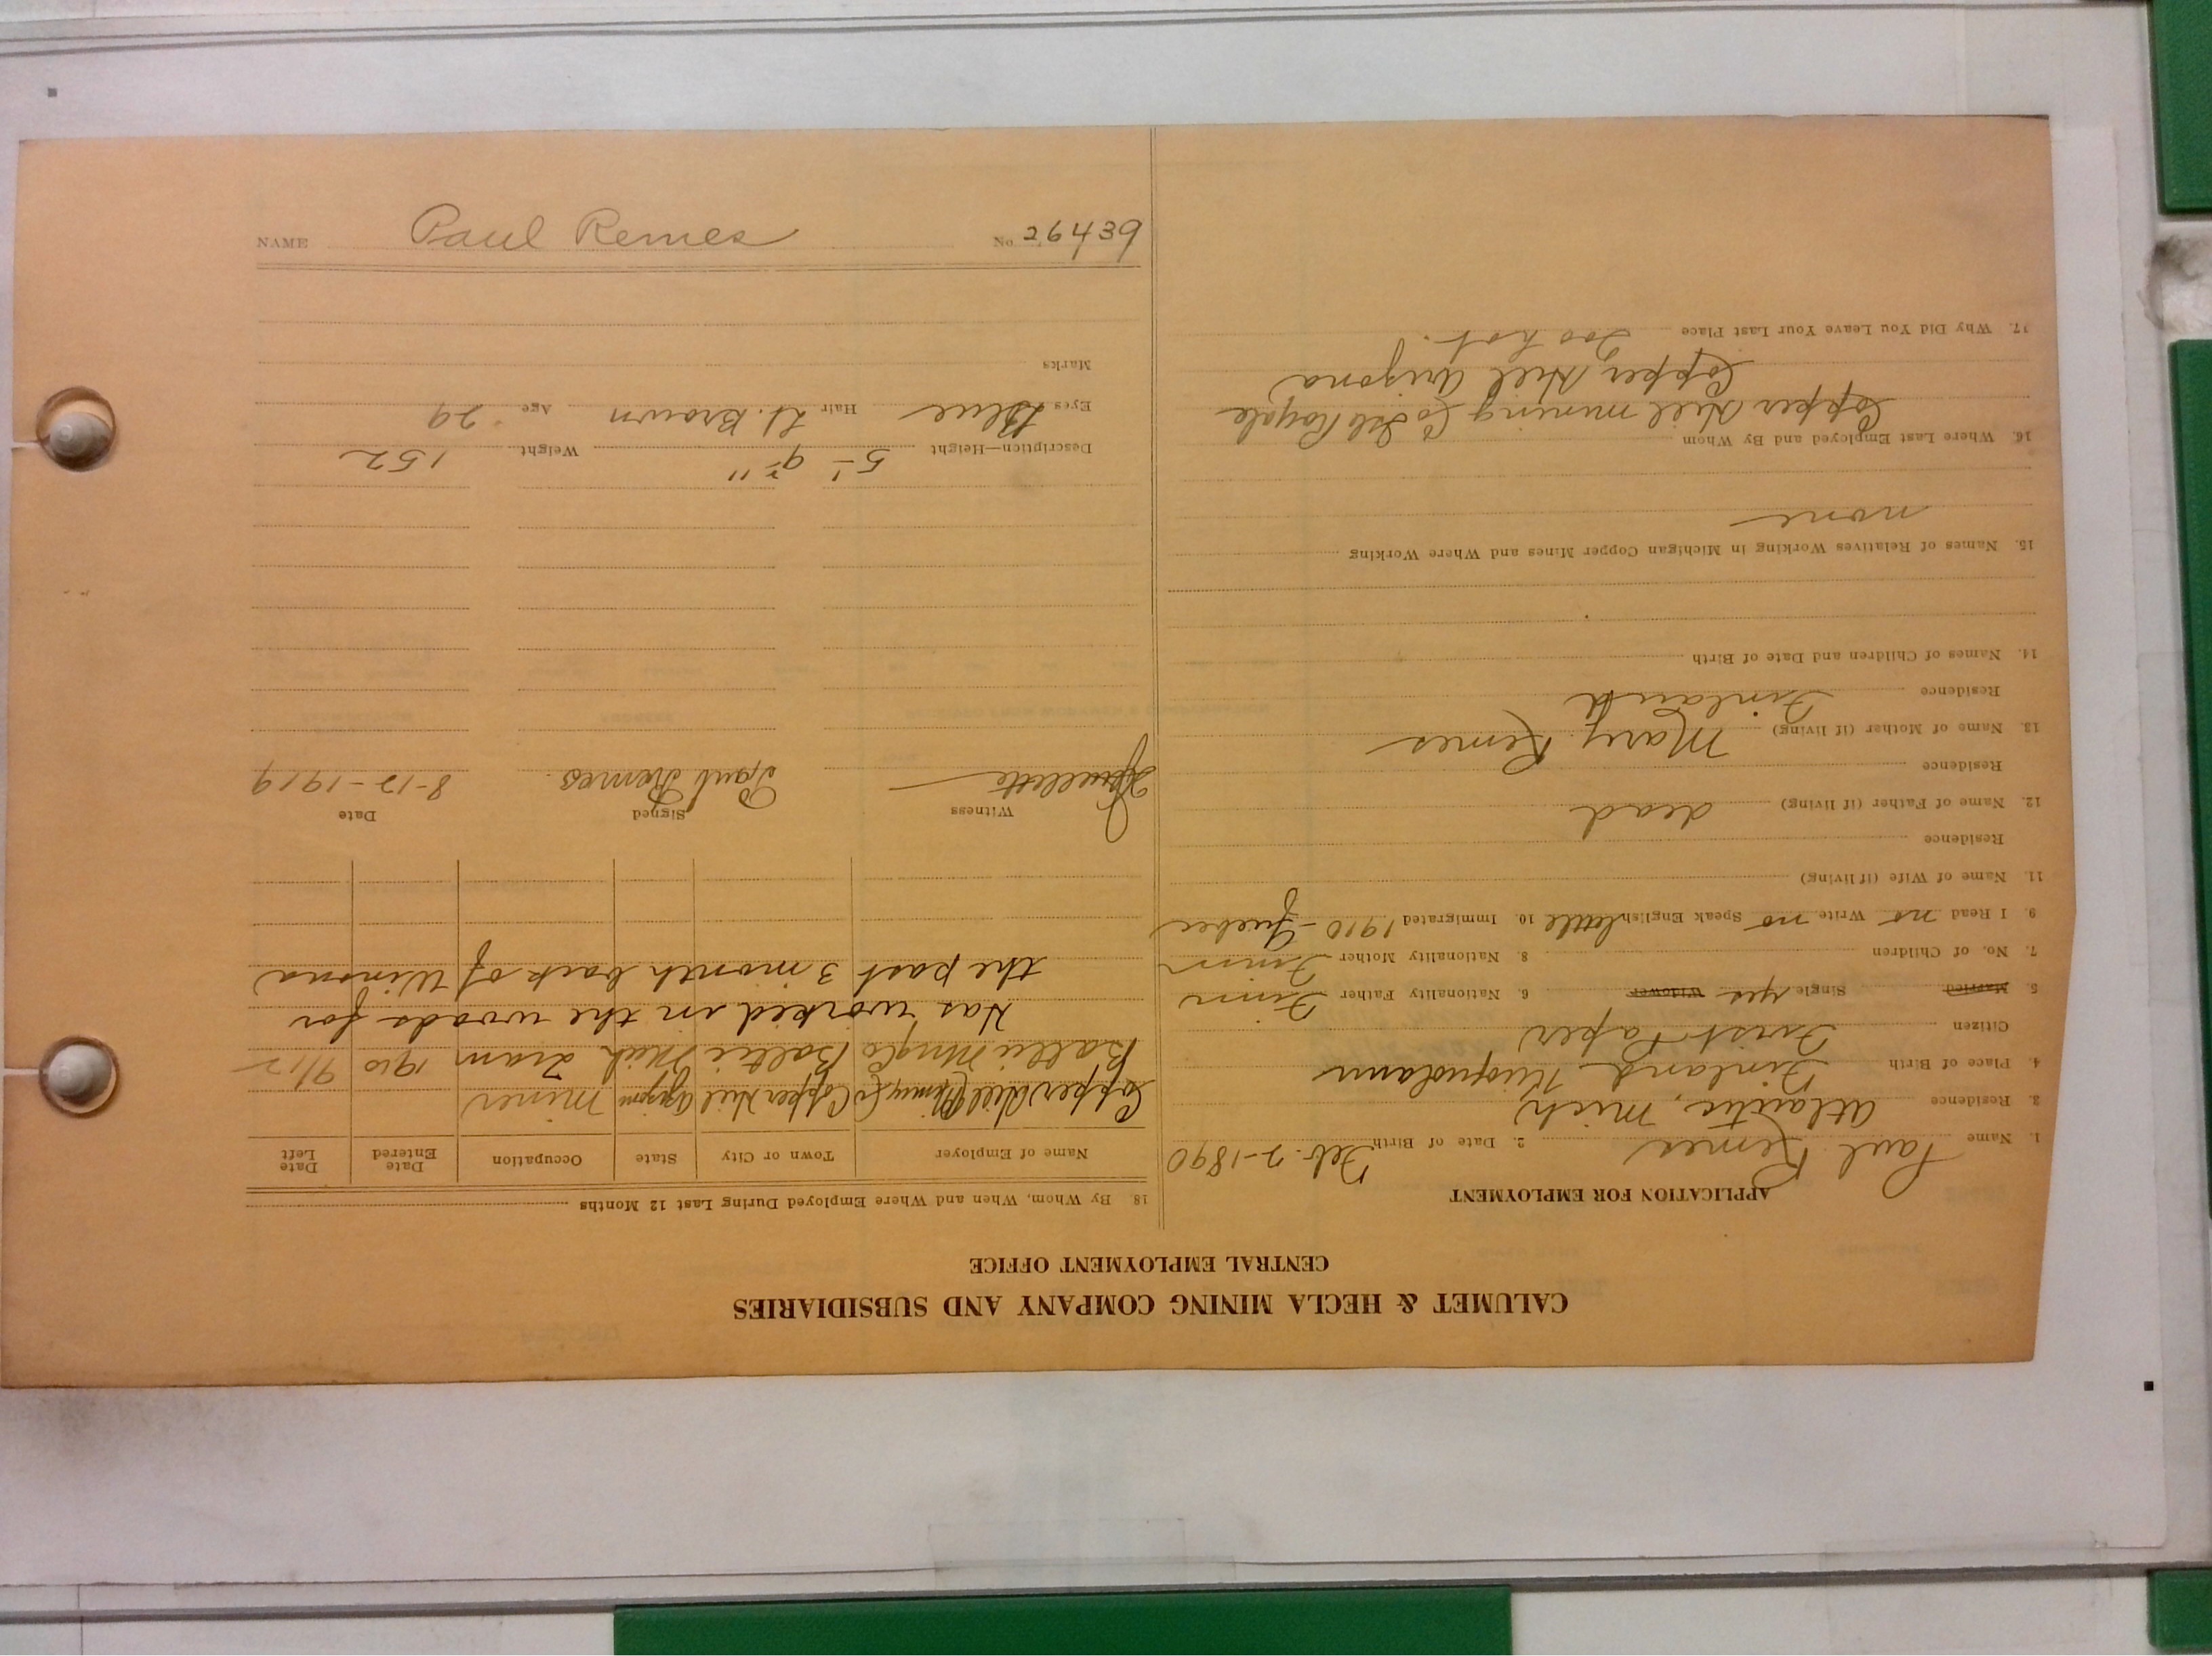 CALUMET & HECLA MINING COMPANY AND SUBSIDIARIES
CENTRAL EMPLOYMENT OFFICE
APPLICATION FOR EMPLOYMENT
1. Name Paul Remes 2. Date of Birth Feb. 2-1890
3. Residence Atlantic, Mich
4. Place of Birth Finland
Citizen First Paper
5. Married Single yes Widower 6. Nationality Father Finn
7. No. of Children 8. Nationality Mother Finn
9. I Read no Write no Speak English little 10. Immigrated 1910 - Quebec
11. Name of Wife (if living)
Residence
12. Name of Father (if living) dead
Residence
13. Name of Mother (if living) Mary Remes
Residence Finland
14. Names of Children and Date of Birth
15. Names of Relatives Working in Michigan Copper Mines and Where Working
none
16. Where Last Employed and By Whom
Copper Hill mining Co Isle Royale
Copper Hill Arizona
17. Why Did You Leave Your Last Place too hot.
18. By Whom, When and Where Employed During Last 12 Months
Name of Employer Town or City State Occupation Date Entered Date Left
Copper Hill Co Copper Hill Miner
Baltic Mng Co Baltic Mich Tram 1910 9/12
Has worked in the woods for
the past 3 month back of Winona
Witness Signed Date
Paul Remes 8-12-1919
Description—Height 5'-9" Weight 152
Eyes Blue Hair Lt. Brown Age 29
Marks
NAME Paul Remes No. 26439